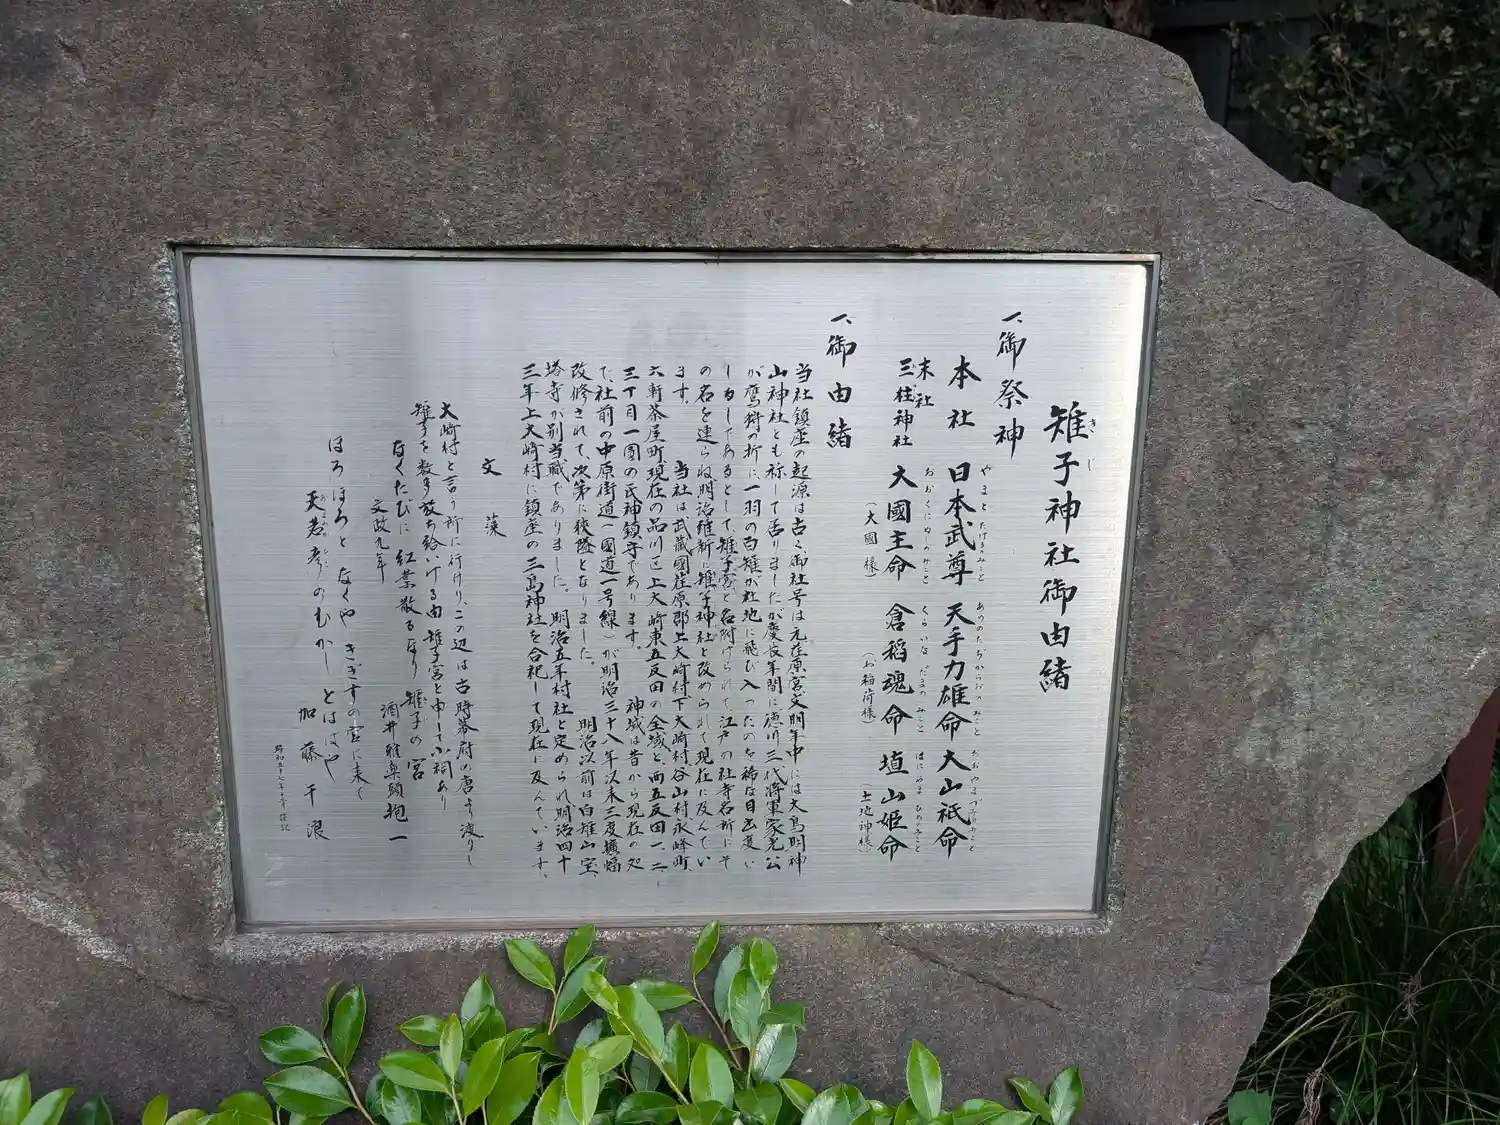 雉子神社御由緒
きじ
一、御祭神
本社 日本武尊 天手力雄命 大山祇命
やまとたけるのみこと あめのたぢからおのみこと おおやまづみのみこと
末社
三柱神社 大國主命 倉稻魂命 埴山姫命
おおくにぬしのみこと くらいなだまのみこと はにやまひめのみこと
(大國様) (お稲荷様) (土地神様)
一、御由緒
当社鎮座の起源は古く御社号は元荏原宮文明年中には大鳥明神
山神社とも称して居りましたが慶長年間に徳川三代将軍家光公
が鷹狩の折に、一羽の白雉が社地に飛び入ったのを稀な目出度い
しるしであるとして、雉子宮と名附けられて、江戸の社寺名所にそ
の名を連らね明治維新に雉子神社と改められて現在に及んでい
ます。 当社は武蔵國荏原郡上大崎村下大崎村谷山村永峰町、
六軒茶屋町現在の品川区上大崎東五反田の全域と、西五反田一、二、
三丁目一園の氏神鎮守であります。 神域は昔から現在の処
で、社前の中原街道(國道一号線)が明治三十八年以来三度拡幅
改修されて、次第に狭隘となりました。 明治以前は白雉山宝
塔寺が別当職でありました。明治五年村社と定められ明治四十
三年上大崎村に鎮座の三島神社を合祀して現在に及んでいます。
文藻
大崎村と言う所に行けり、この辺は古時幕府の唐より渡りし
雉子を数多放ち給いける由雉子宮と申して小祠あり
なくたびに 紅葉散るなり 雉子の宮
文政九年 酒井雅楽頭抱一
ほろほろと なくや きぎすの宮に来て
天若彦のむかしとはばや
加藤千浪